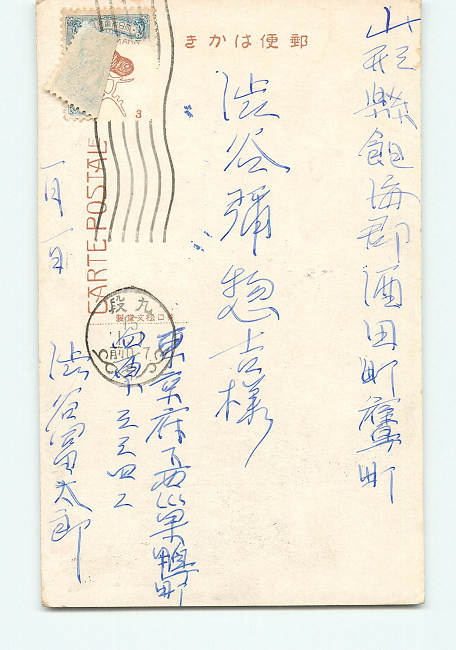 きかは便郵
山形縣飽海郡酒田町鷹町
澁谷彌惣吉様
東京府下西巣鴨町
宮東三三四二
澁谷富太郎
一月一日
CARTE POSTALE
九段
3